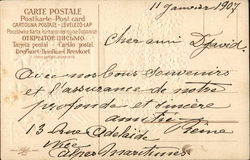 CARTE POSTALE
Postkarte - Post card
CARTOLINA POSTALE - LEVELEZŐ-LAP
ОТКРЫТОЕ ПИСЬМО.
Tarjeta postal - Cartão postal
Brefkort - Brevkort
11 janvier 1907.
Cher ami David
avec nos bons souvenirs
et l'assurance de notre
profonde et sincère
amitié
13 Rue Adelaide
Nice
Alpes Maritimes